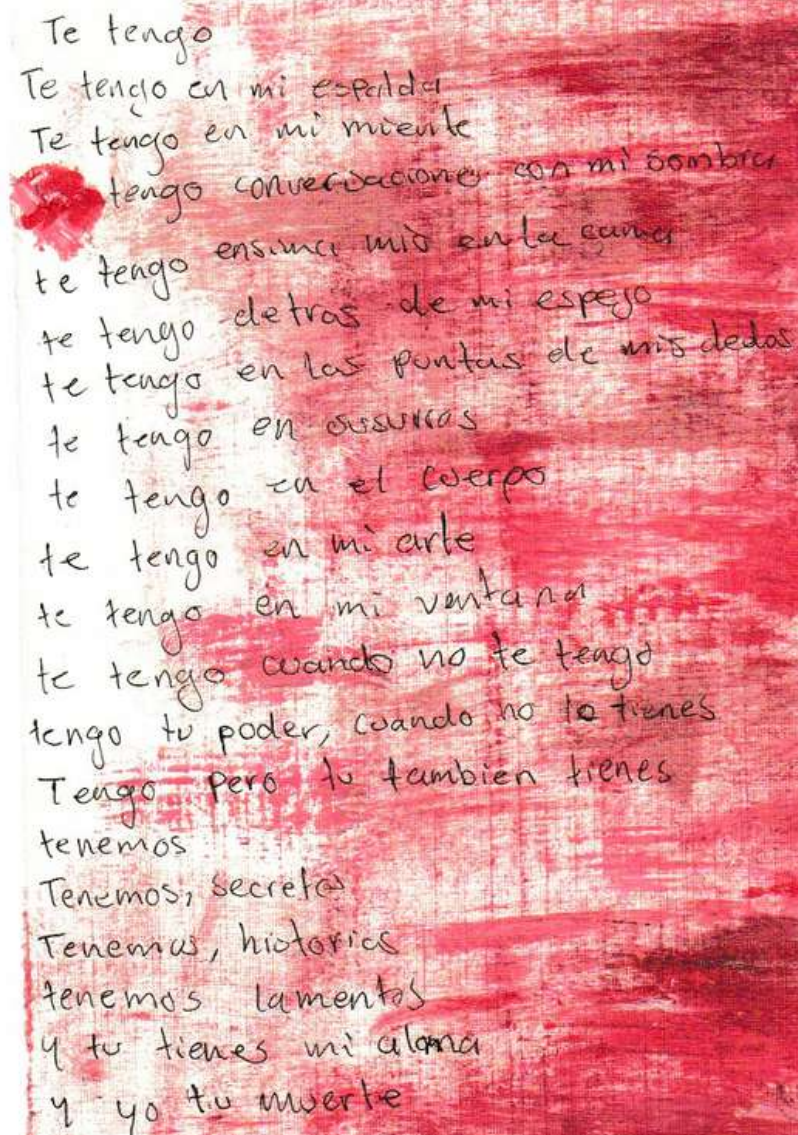 Te tengo
Te tengo en mi espalda
Te tengo en mi miente
tengo conversaciones con mi sombra
te tengo ensima mio en la cama
te tengo detras de mi espejo
te tengo en las puntas de mis dedos
te tengo en susurros
te tengo en el cuerpo
te tengo en mi arte
te tengo en mi ventana
te tengo cuando no te tengo
tengo tu poder, cuando no lo tienes
Tengo pero tu tambien tienes
tenemos
Tenemos, secretos
Tenemos, historias
tenemos lamentos
y tu tienes mi alma
y yo tu muerte